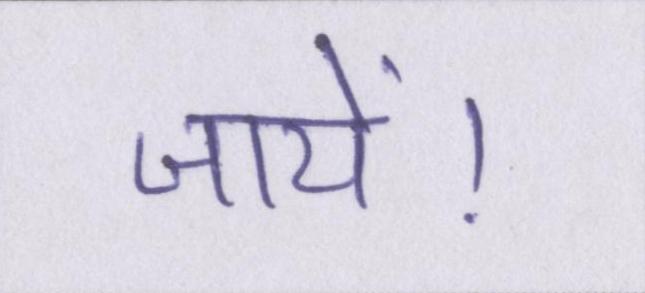 जायें!